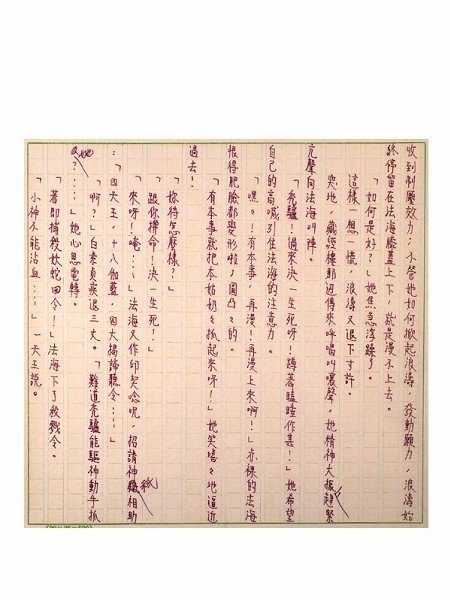 收到制壓效力，不管她如何掀起浪濤，發動願力，浪濤始
終停留在法海膝蓋上下，就是漫不上去。
「如何是好？」她焦急浮躁了。
這樣一想一慌，浪濤又退下寸許。
突地，藏經樓那邊傳來呼喝叫嚷聲，她精神大振趕緊
亢聲向法海叫陣。
「禿驢！過來決一生死呀！蹲著瞌睡作甚！」她希望
自己的高喊引住法海的注意力。
「嘿々！有本事，再漫！再漫上來啊！」赤裸的法海
恨得肥臉都變形啦，圓凸々的。
「有本事就把本姑奶々抓起來呀！」她笑嘻々地逼近
過去！
「妳待怎麼樣？」
「跟你拼命！決一生死！」
「來呀！唵…」法海又作印契念呪，招請神祇相助
：「四天王，十八伽藍，四大揭諦聽令…」
「啊？」白素貞疾退三丈。「難道禿驢能驅神動手抓
她？…」她心思電轉。
「著即擒殺妖蛇回令！」法海下了殺機令。
「小神不能沾血…」一天王說。